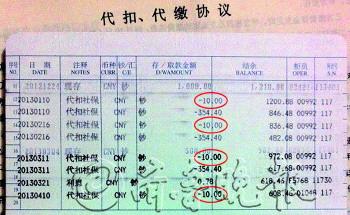 代扣、代缴协议
日期 注释 币种 钞/汇 存/取款金额 结余 柜员
DATE NOTES CURR. C/E D/WAMOUNT BALANCE OPER S.N
20121224 现存 CNY 钞 1,000.00 1,210.88
20130110 代扣社保 CNY 钞 -10.00 1200.88 00992 117
20130110 代扣社保 CNY 钞 -354.40 846.48 00992 117
20130216 代扣社保 CNY 钞 -10.00 836.48 00992 117
20130216 代扣社保 CNY 钞 -354.40 482.08 00992 117
现存
20130311 代扣社保 CNY 钞 -10.00 972.08 00992 117
20130311 代扣社保 CNY 钞 -354.40 617.68 00992 117
20130321 利息 CNY 钞 0.78 618.46
20130410 代扣社保 CNY 钞 -10.00 608.46 117